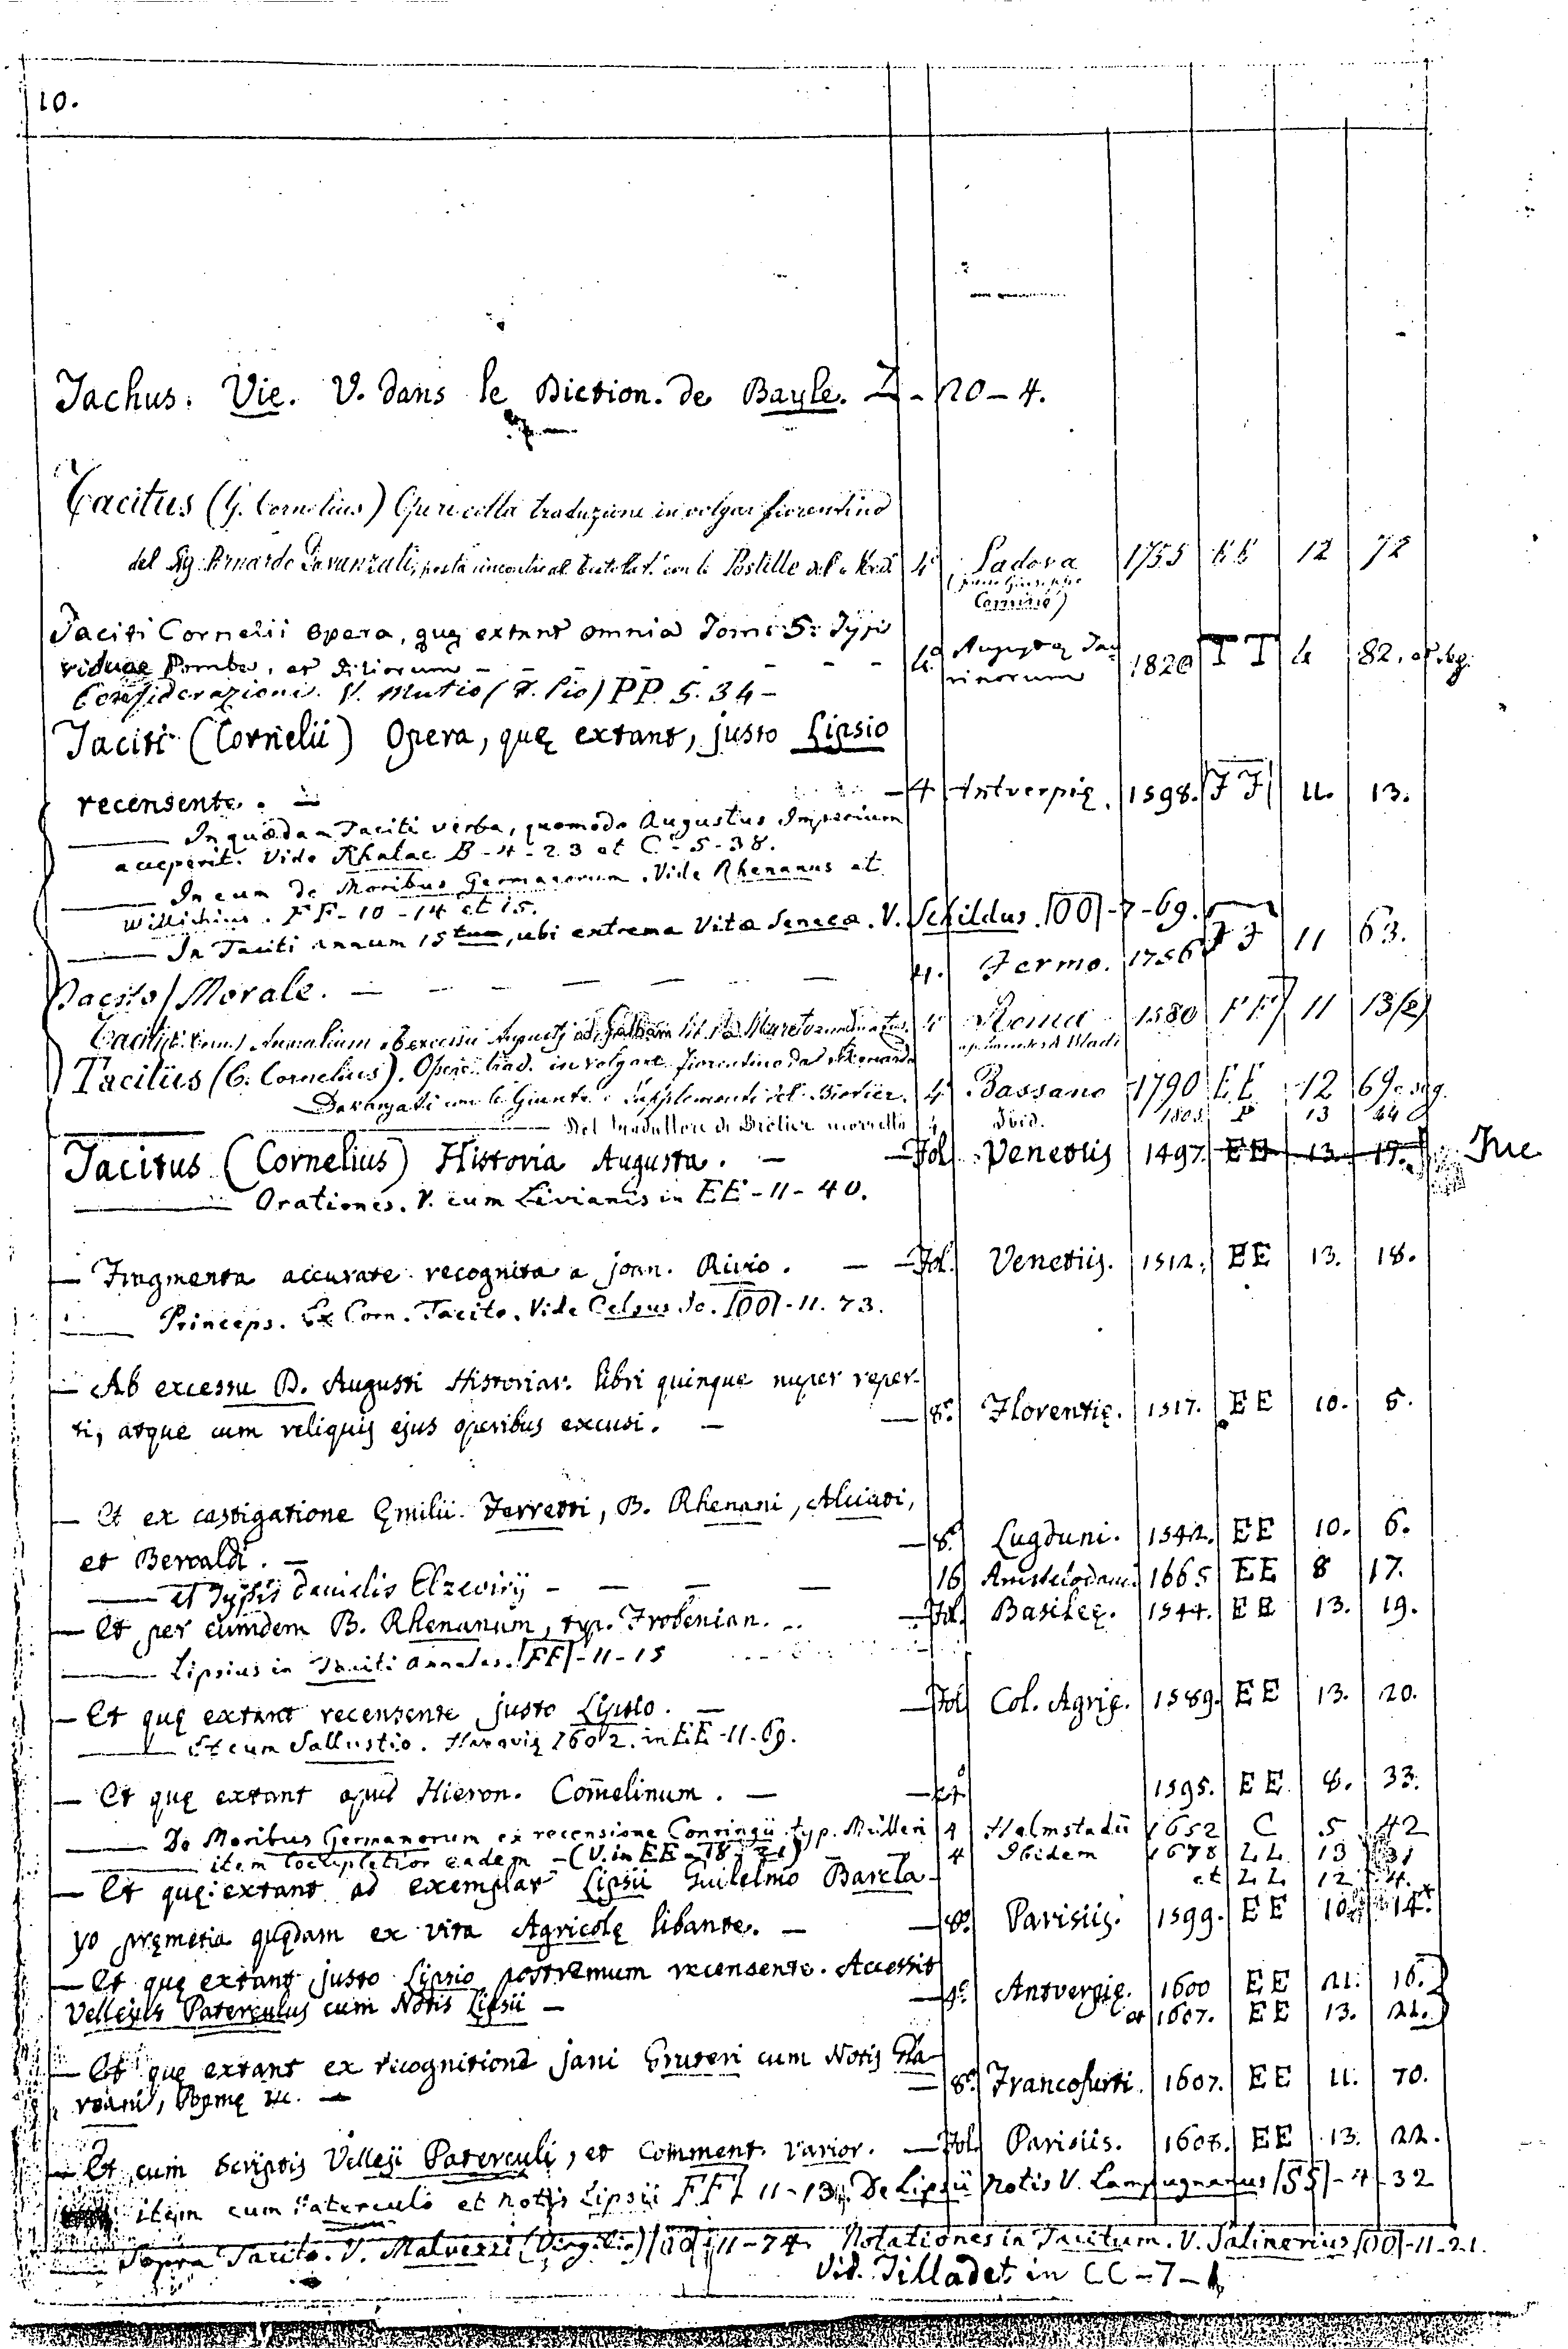 10.
Tachus. Vie. V. dans le Diction. de Bayle. Z - 20 - 4.
Tacitus (G. Cornelius) Opere colla traduzione in volgar fiorentino
del Sig. Bernardo Davanzati, posta rincontro al testo lat. con le Postille 4° Padova 1755 EE 12 72
(Giuseppe Comino)
Taciti Cornelii opera, quę extant omnia Tomi 5. Typis
viduae Pomba, et filiorum - - - - - - 4° Augustę Tau 1820 TT 4 82. et seq.
rinorum
Considerazioni. V. Mutio (T. Pio) PP. 5. 34 -
Taciti (Cornelii) Opera, quę extant, justo Lipsio
recensente. — 4 Antverpię. 1598. FF 11. 13.
— In quædam Taciti verba, quomodo Augustus Imperium
acceperit. Vide Rhalac B - 4 - 23 et C - 5 - 38.
— In eum de Moribus Germanorum. Vide Rhenanus et
Willichius. FF - 10 - 14 et 15.
— In Taciti annum 15tum, ubi extrema Vitæ Senecæ. V. Schildus. OO - 7 - 69.
Tacito Morale. — — — — 4. Fermo. 1756 FF 11 63.
Tacit. Corn. Annalium ab excessu Augusti ad Galbam 4° Roma 1580 FF 11 13(2)
Tacitus (C. Cornelius). Opere trad. in volgare fiorentino da Bernardo
Davanzati con le Giunte e Supplementi del Brotier. 4° Bassano 1790 EE 12 69 e seg.
— Del traduttore di Brotier 4 Ibid. 1803 P 13 44
Tacitus (Cornelius) Historia Augusta. — Fol. Venetiis 1497 EE 13. 17. Inc
— Orationes. V. cum Livianis in EE - 11 - 40.
— Fragmenta accurate recognita a joan. Rivio. — Fol. Venetiis. 1512. EE 13. 18.
— Princeps. Ex Corn. Tacito. Vide Celsus Jo. OO - 11. 73.
— Ab excessu D. Augusti Historiar. libri quinque nuper reper-
ti, atque cum reliquis ejus operibus excusi. — 8° Florentię. 1517. EE 10. 5.
— Et ex castigatione Ęmilii Ferretti, B. Rhenani, Alciati,
et Beroaldi. — 8° Lugduni. 1542. EE 10. 6.
— et Typis Danielis Elzevirij - — — — 16 Amstelodami. 1665 EE 8 17.
— Et per eumdem B. Rhenanum, typ. Frobenian. — Fol. Basileę. 1544. EE 13. 19.
— Lipsius in Taciti Annales. FF - 11 - 15
— Et quę extant recensente justo Lipsio. — Fol. Col. Agrip. 1589. EE 13. 20.
— Et cum Sallustio. 1602. in EE - 11. 69.
— Et quę extant apud Hieron. Com̃elinum. — 1595. EE 8. 33.
— De Moribus Germanorum ex recensione Conringii typ. Mülleri 4 Halmstadii 1652 C 5 42
— item locupletior eadem - (V. in EE - 18 - 21) 4 Ibidem 1678 LL 13 31
et LL 12 4.
— Et quę extant ad exemplar Lipsii Guilelmo Barcla-
yo pręmetia quędam ex vita Agricolę libante. — 8° Parisiis. 1599. EE 10. 14.
— Et quę extant justo Lipsio postremum recensente. Accessit
Vellejus Paterculus cum Notis Lipsii — Antverpię. 1600 EE 11. 16.
et 1607. EE 13. 21.
— Et quę extant ex recognitione jani Gruteri cum Notis Gla-
reani, Popmę &c. — 8° Francofurti. 1607. EE 11. 70.
— Et cum scriptis Velleji Paterculi, et Comment. varior. — Fol. Parisiis. 1608. EE 13. 22.
item cum Paterculo et notis Lipsii FF 11 - 13. De Lipsii Notis V. Lampugnanus SS - 4 - 32
— Sopra Tacito. V. Malvezzi (Virgilio) OO - 11 - 74. Notationes in Tacitum. V. Salinerius OO - 11 - 21.
Vid. Tilladet in CC - 7 - 1